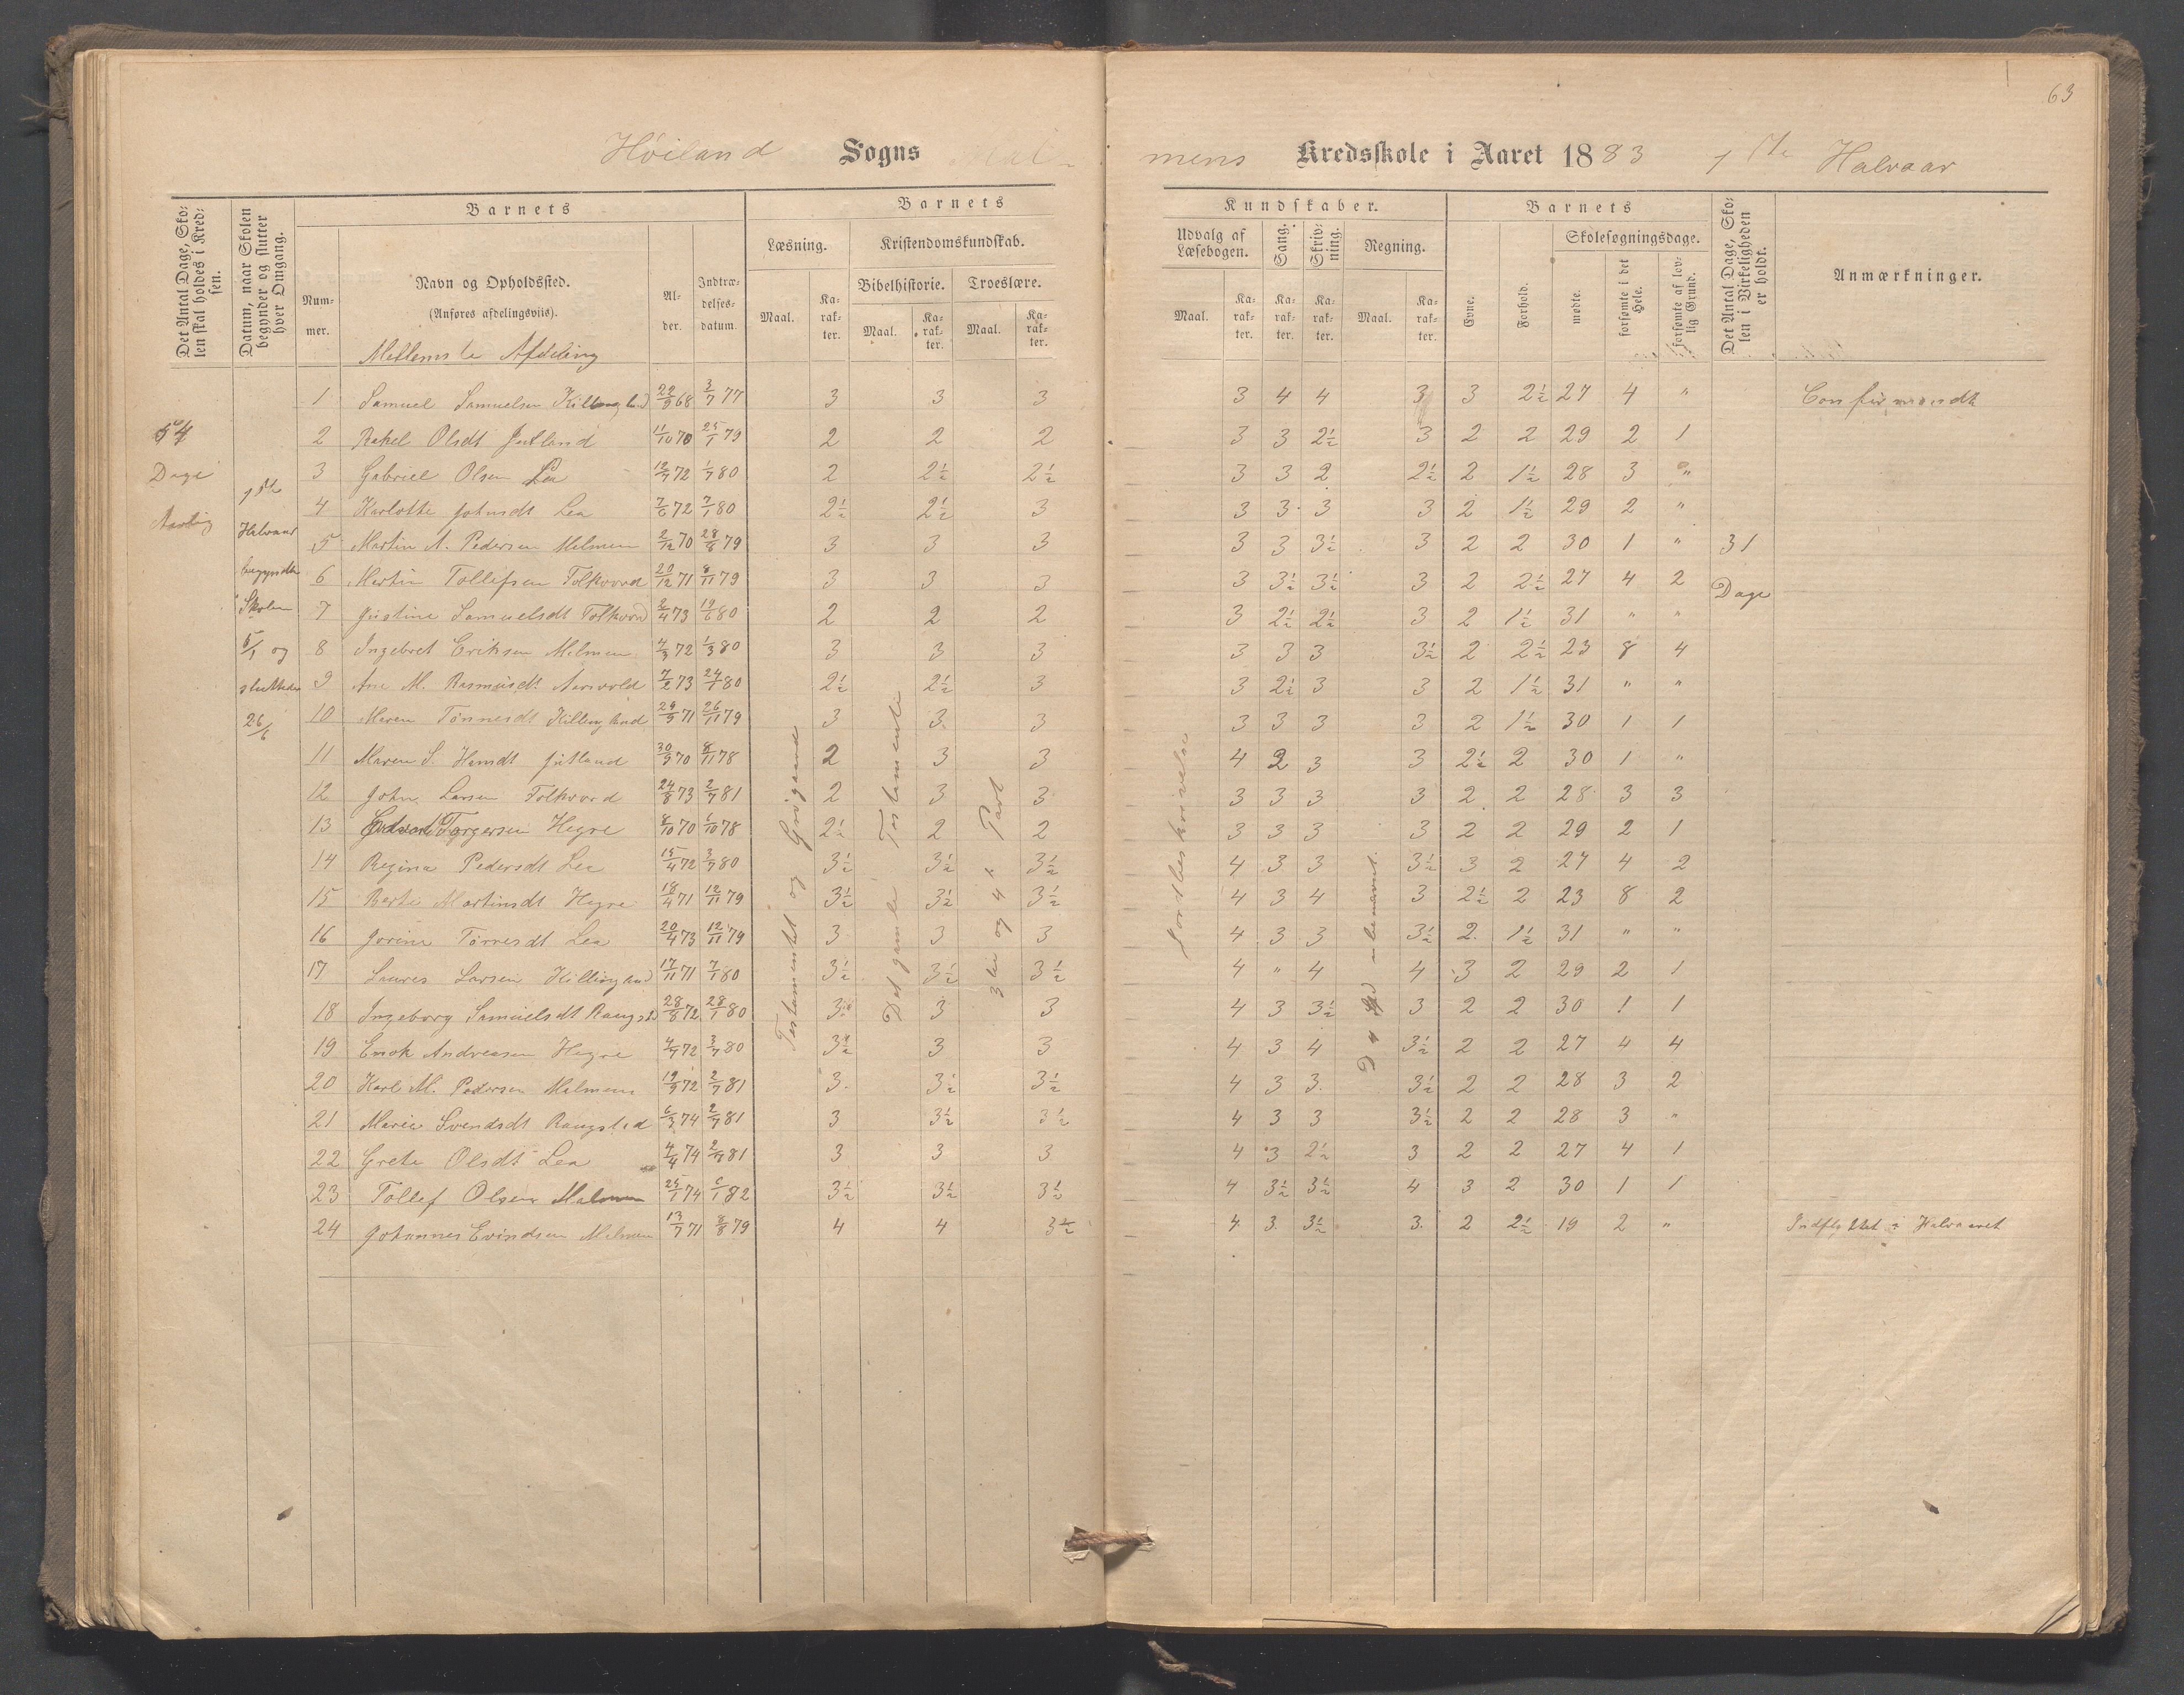 63
Höiland Sogns Mal-
mens Kredsskole i Aaret 1883 1ste Halvaar
Det Antal Dage, Skolen skal holdes i Kredsen.
Datum, naar Skolen begynder og slutter hver Omgang.
Barnets
Nummer.
Navn og Opholdssted.
(Anføres afdelingsviis).
Alder.
Indtrædelsesdatum.
Barnets
Læsning.
Kristendomskundskab.
Bibelhistorie. Troeslære.
Maal. Karakter. Maal. Karakter. Maal. Karakter.
Kundskaber.
Udvalg af Læsebogen. Sang. Skrivning. Regning.
Maal. Karakter. Karakter. Karakter. Maal. Karakter.
Barnets
Evne. Forhold.
Skolesøgningsdage.
mødte. forsømte i det Hele. forsømte af lovlig Grund.
Det Antal Dage, Skolen i Virkeligheden er holdt.
Anmærkninger.
Mellemste Afdeling
54
Dage
1ste
Halvaar
begyndte
Skolen
5/1 og
sluttedes
26/6
Testamentet og
Det gamle Testamente
3die og 4de Part
Jordbeskrivelse
31
Dage
1 Samuel Samuelsen Killingland 22/9 68 3/7 77 3 3 3 3 4 4 3 3 2½ 27 4 " Confirmandt
2 Rakel Olsdt Jutland 11/10 70 25/1 79 2 2 2 3 3 2½ 3 2 2 29 2 1
3 Gabriel Olsen Lea 12/7 72 1/7 80 2 2½ 2½ 3 3 2 2½ 2 1½ 28 3 "
4 Karlotte Johnsdt Lea 7/6 72 7/1 80 2½ 2½ 3 3 3 3 3 2 1½ 29 2 "
5 Martin A. Pedersen Melmen 2/12 70 28/8 79 3 3 3 3 3 3½ 3 2 2 30 1 "
6 Martin Tollefsen Folkvord 20/12 71 8/11 79 3 3 3 3 3½ 3½ 3 2 2½ 27 4 2
7 Justine Samuelsdt Folkvord 2/4 73 19/6 80 2 2 2 3 2½ 2½ 3 2 1½ 31 " "
8 Ingebret Eriksen Melmen 4/3 72 1/3 80 3 3 3 3 3 3 3½ 2 2½ 23 8 4
9 Ane M. Rasmusdt Aarsvold 7/2 73 24/1 80 2½ 2½ 3 3 2½ 3 3 2 1½ 31 " "
10 Maren Tønnesdt Killingland 29/9 71 26/11 79 3 3 3 3 3 3 3 2 1½ 30 1 1
11 Maren S. Hansdt Jutland 30/3 70 8/11 78 2 3 3 4 2 3 3 2½ 2 30 1 "
12 John Larsen Folkvord 24/8 73 2/7 81 2 3 3 3 3 3 3 2 2 28 3 3
13 Edvard Torgersen Hegre 8/10 70 1/10 78 2½ 2 2 3 3 3 3 2 2 29 2 1
14 Regina Pedersdt Lea 15/4 72 3/7 80 3½ 3½ 3½ 4 3 3 3½ 3 2 27 4 2
15 Berte Martinsdt Hegre 18/4 71 12/11 79 3½ 3½ 3½ 4 3 4 3 2½ 2 23 8 2
16 Jorine Torresdt Lea 20/4 73 12/11 79 3 3 3 4 3 3 3½ 2 1½ 31 " "
17 Laures Larsen Killingland 17/11 71 7/1 80 3½ 3½ 3½ 4 " 4 4 3 2 29 2 1
18 Ingeborg Samuelsdt 28/8 72 28/1 80 3 3 3 4 3 3½ 3 2 2 30 1 1
19 Enok Andreasen Hegre 4/7 72 3/7 80 3½ 3 3 4 3 4 3½ 2 2 27 4 4
20 Karl M. Pedersen Malmen 19/9 72 2/7 81 3 3½ 3½ 4 3 3 3½ 2 2 28 3 2
21 Marie Svendsdt 6/3 74 2/7 81 3 3½ 3½ 4 3 3 3½ 2 2 28 3 "
22 Grete Olsdt Lea 4/4 74 2/7 81 3 3 3 4 3 2½ 3 2 2 27 4 1
23 Tollef Olsen Malmen 25/1 74 5/1 82 3½ 3½ 3½ 4 3½ 3½ 4 3 2 30 1 1
24 Johannes Evindsen Melmen 13/7 71 8/8 79 4 4 3½ 4 3 3½ 3 2 2½ 19 2 " Indflyttet i Halvaaret